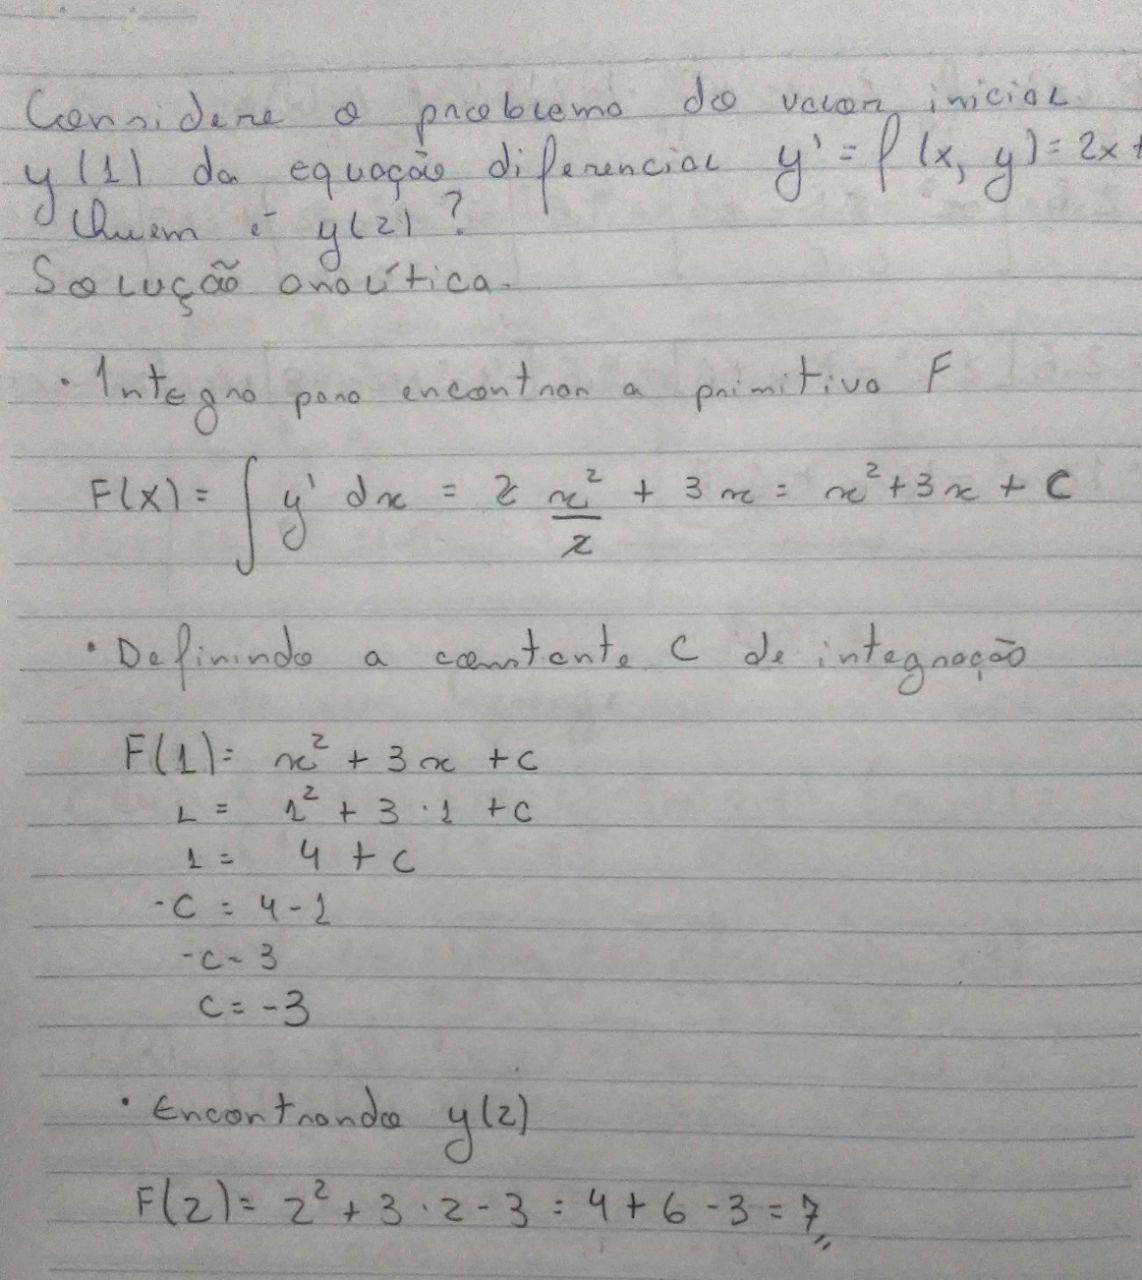 Considere o problema do valor inicial
y(1) da equação diferencial y' = f(x, y) = 2x +
Quem é y(2)?
Solução analítica.
• Integro para encontrar a primitiva F
F(x) = ∫ y' dx = 2 x²/2 + 3x = x² + 3x + C
• Definindo a constante C de integração
F(1) = x² + 3x + c
1 = 1² + 3 · 1 + c
1 = 4 + c
-c = 4 - 1
-c = 3
c = -3
• Encontrando y(2)
F(2) = 2² + 3 · 2 - 3 = 4 + 6 - 3 = 7